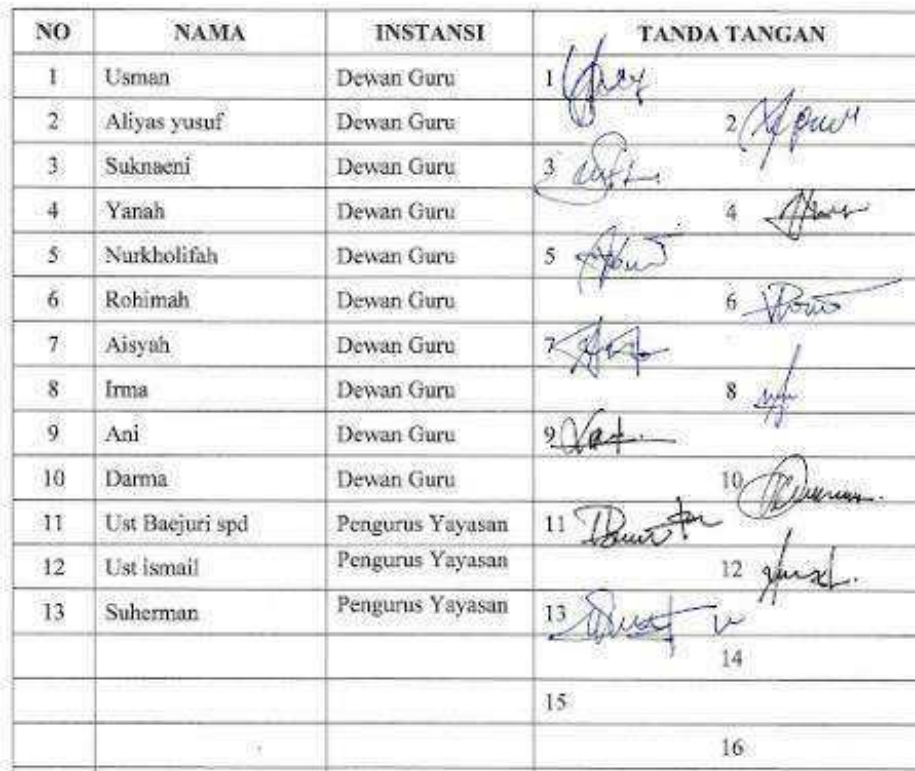 NO NAMA INSTANSI TANDA TANGAN
1 Usman Dewan Guru 1
2 Aliyas yusuf Dewan Guru 2
3 Suknaeni Dewan Guru 3
4 Yanah Dewan Guru 4
5 Nurkholifah Dewan Guru 5
6 Rohimah Dewan Guru 6
7 Aisyah Dewan Guru 7
8 Irma Dewan Guru 8
9 Ani Dewan Guru 9
10 Darma Dewan Guru 10
11 Ust Baejuri spd Pengurus Yayasan 11
12 Ust ismail Pengurus Yayasan 12
13 Suherman Pengurus Yayasan 13
14
15
16